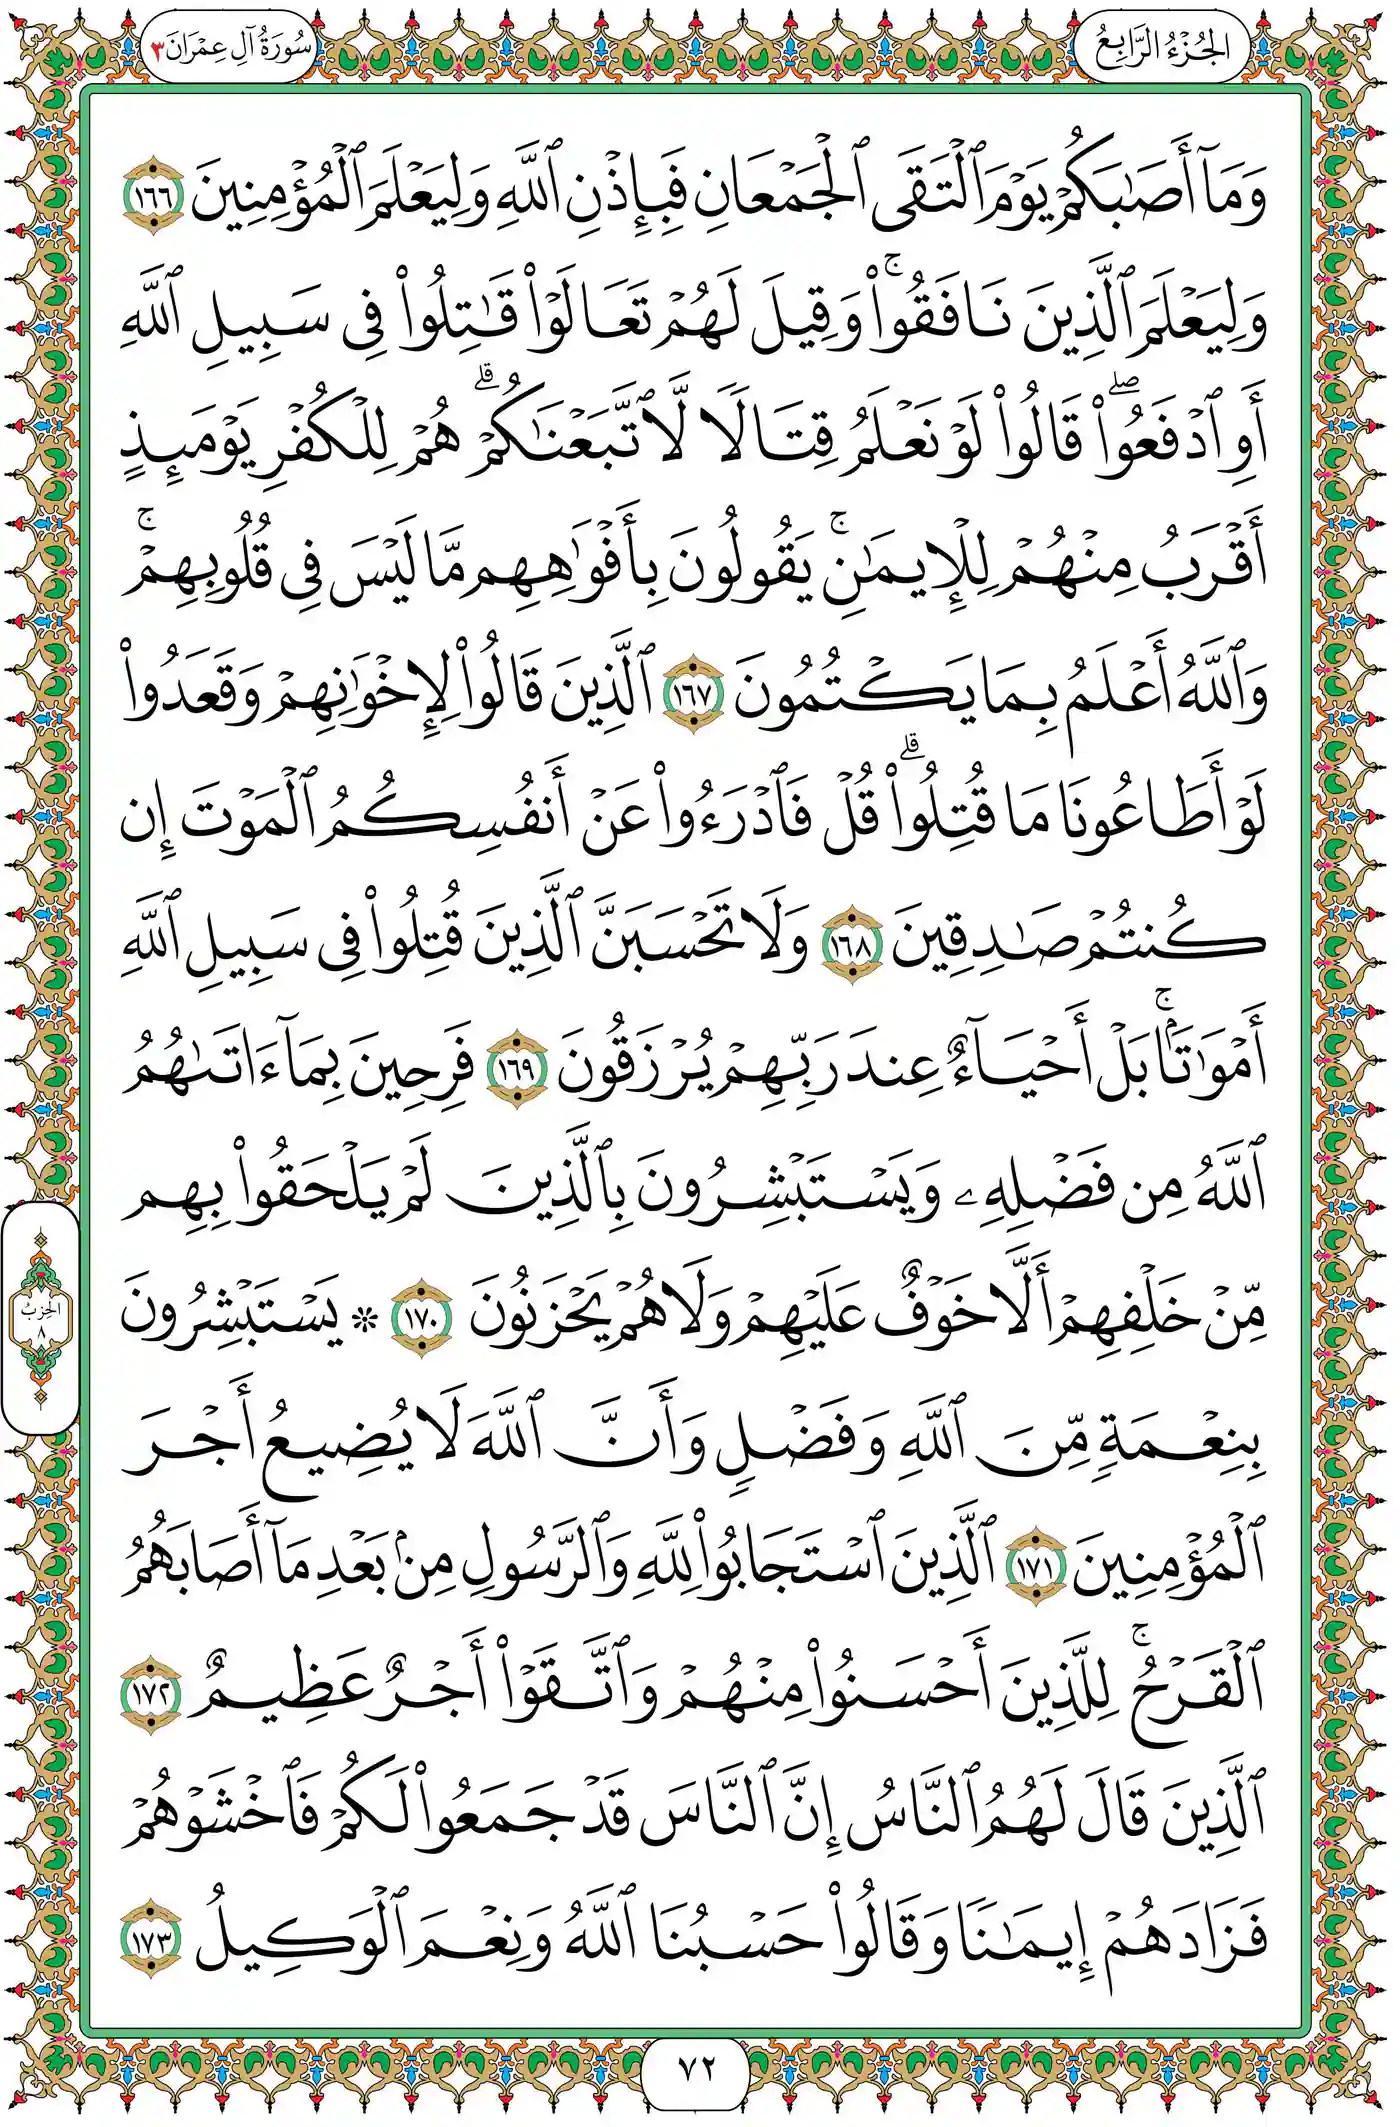 الجُزْءُ الرَّابِعُ
سُورَةُ آلِ عِمْرَانَ ٣
وَمَآ أَصَٰبَكُمْ يَوْمَ ٱلْتَقَى ٱلْجَمْعَانِ فَبِإِذْنِ ٱللَّهِ وَلِيَعْلَمَ ٱلْمُؤْمِنِينَ ١٦٦
وَلِيَعْلَمَ ٱلَّذِينَ نَافَقُوا۟ ۚ وَقِيلَ لَهُمْ تَعَالَوْا۟ قَٰتِلُوا۟ فِى سَبِيلِ ٱللَّهِ
أَوِ ٱدْفَعُوا۟ ۖ قَالُوا۟ لَوْ نَعْلَمُ قِتَالًا لَّٱتَّبَعْنَٰكُمْ ۗ هُمْ لِلْكُفْرِ يَوْمَئِذٍ
أَقْرَبُ مِنْهُمْ لِلْإِيمَٰنِ ۚ يَقُولُونَ بِأَفْوَٰهِهِم مَّا لَيْسَ فِى قُلُوبِهِمْ ۚ
وَٱللَّهُ أَعْلَمُ بِمَا يَكْتُمُونَ ١٦٧ ٱلَّذِينَ قَالُوا۟ لِإِخْوَٰنِهِمْ وَقَعَدُوا۟
لَوْ أَطَاعُونَا مَا قُتِلُوا۟ ۗ قُلْ فَٱدْرَءُوا۟ عَنْ أَنفُسِكُمُ ٱلْمَوْتَ إِن
كُنتُمْ صَٰدِقِينَ ١٦٨ وَلَا تَحْسَبَنَّ ٱلَّذِينَ قُتِلُوا۟ فِى سَبِيلِ ٱللَّهِ
أَمْوَٰتًۢا ۚ بَلْ أَحْيَآءٌ عِندَ رَبِّهِمْ يُرْزَقُونَ ١٦٩ فَرِحِينَ بِمَآ ءَاتَىٰهُمُ
ٱللَّهُ مِن فَضْلِهِۦ وَيَسْتَبْشِرُونَ بِٱلَّذِينَ لَمْ يَلْحَقُوا۟ بِهِم
مِّنْ خَلْفِهِمْ أَلَّا خَوْفٌ عَلَيْهِمْ وَلَا هُمْ يَحْزَنُونَ ١٧٠ ۞ يَسْتَبْشِرُونَ
بِنِعْمَةٍ مِّنَ ٱللَّهِ وَفَضْلٍ وَأَنَّ ٱللَّهَ لَا يُضِيعُ أَجْرَ
ٱلْمُؤْمِنِينَ ١٧١ ٱلَّذِينَ ٱسْتَجَابُوا۟ لِلَّهِ وَٱلرَّسُولِ مِنۢ بَعْدِ مَآ أَصَابَهُمُ
ٱلْقَرْحُ ۚ لِلَّذِينَ أَحْسَنُوا۟ مِنْهُمْ وَٱتَّقَوْا۟ أَجْرٌ عَظِيمٌ ١٧٢
ٱلَّذِينَ قَالَ لَهُمُ ٱلنَّاسُ إِنَّ ٱلنَّاسَ قَدْ جَمَعُوا۟ لَكُمْ فَٱخْشَوْهُمْ
فَزَادَهُمْ إِيمَٰنًا وَقَالُوا۟ حَسْبُنَا ٱللَّهُ وَنِعْمَ ٱلْوَكِيلُ ١٧٣
الحِزْبُ
٨
٧٢